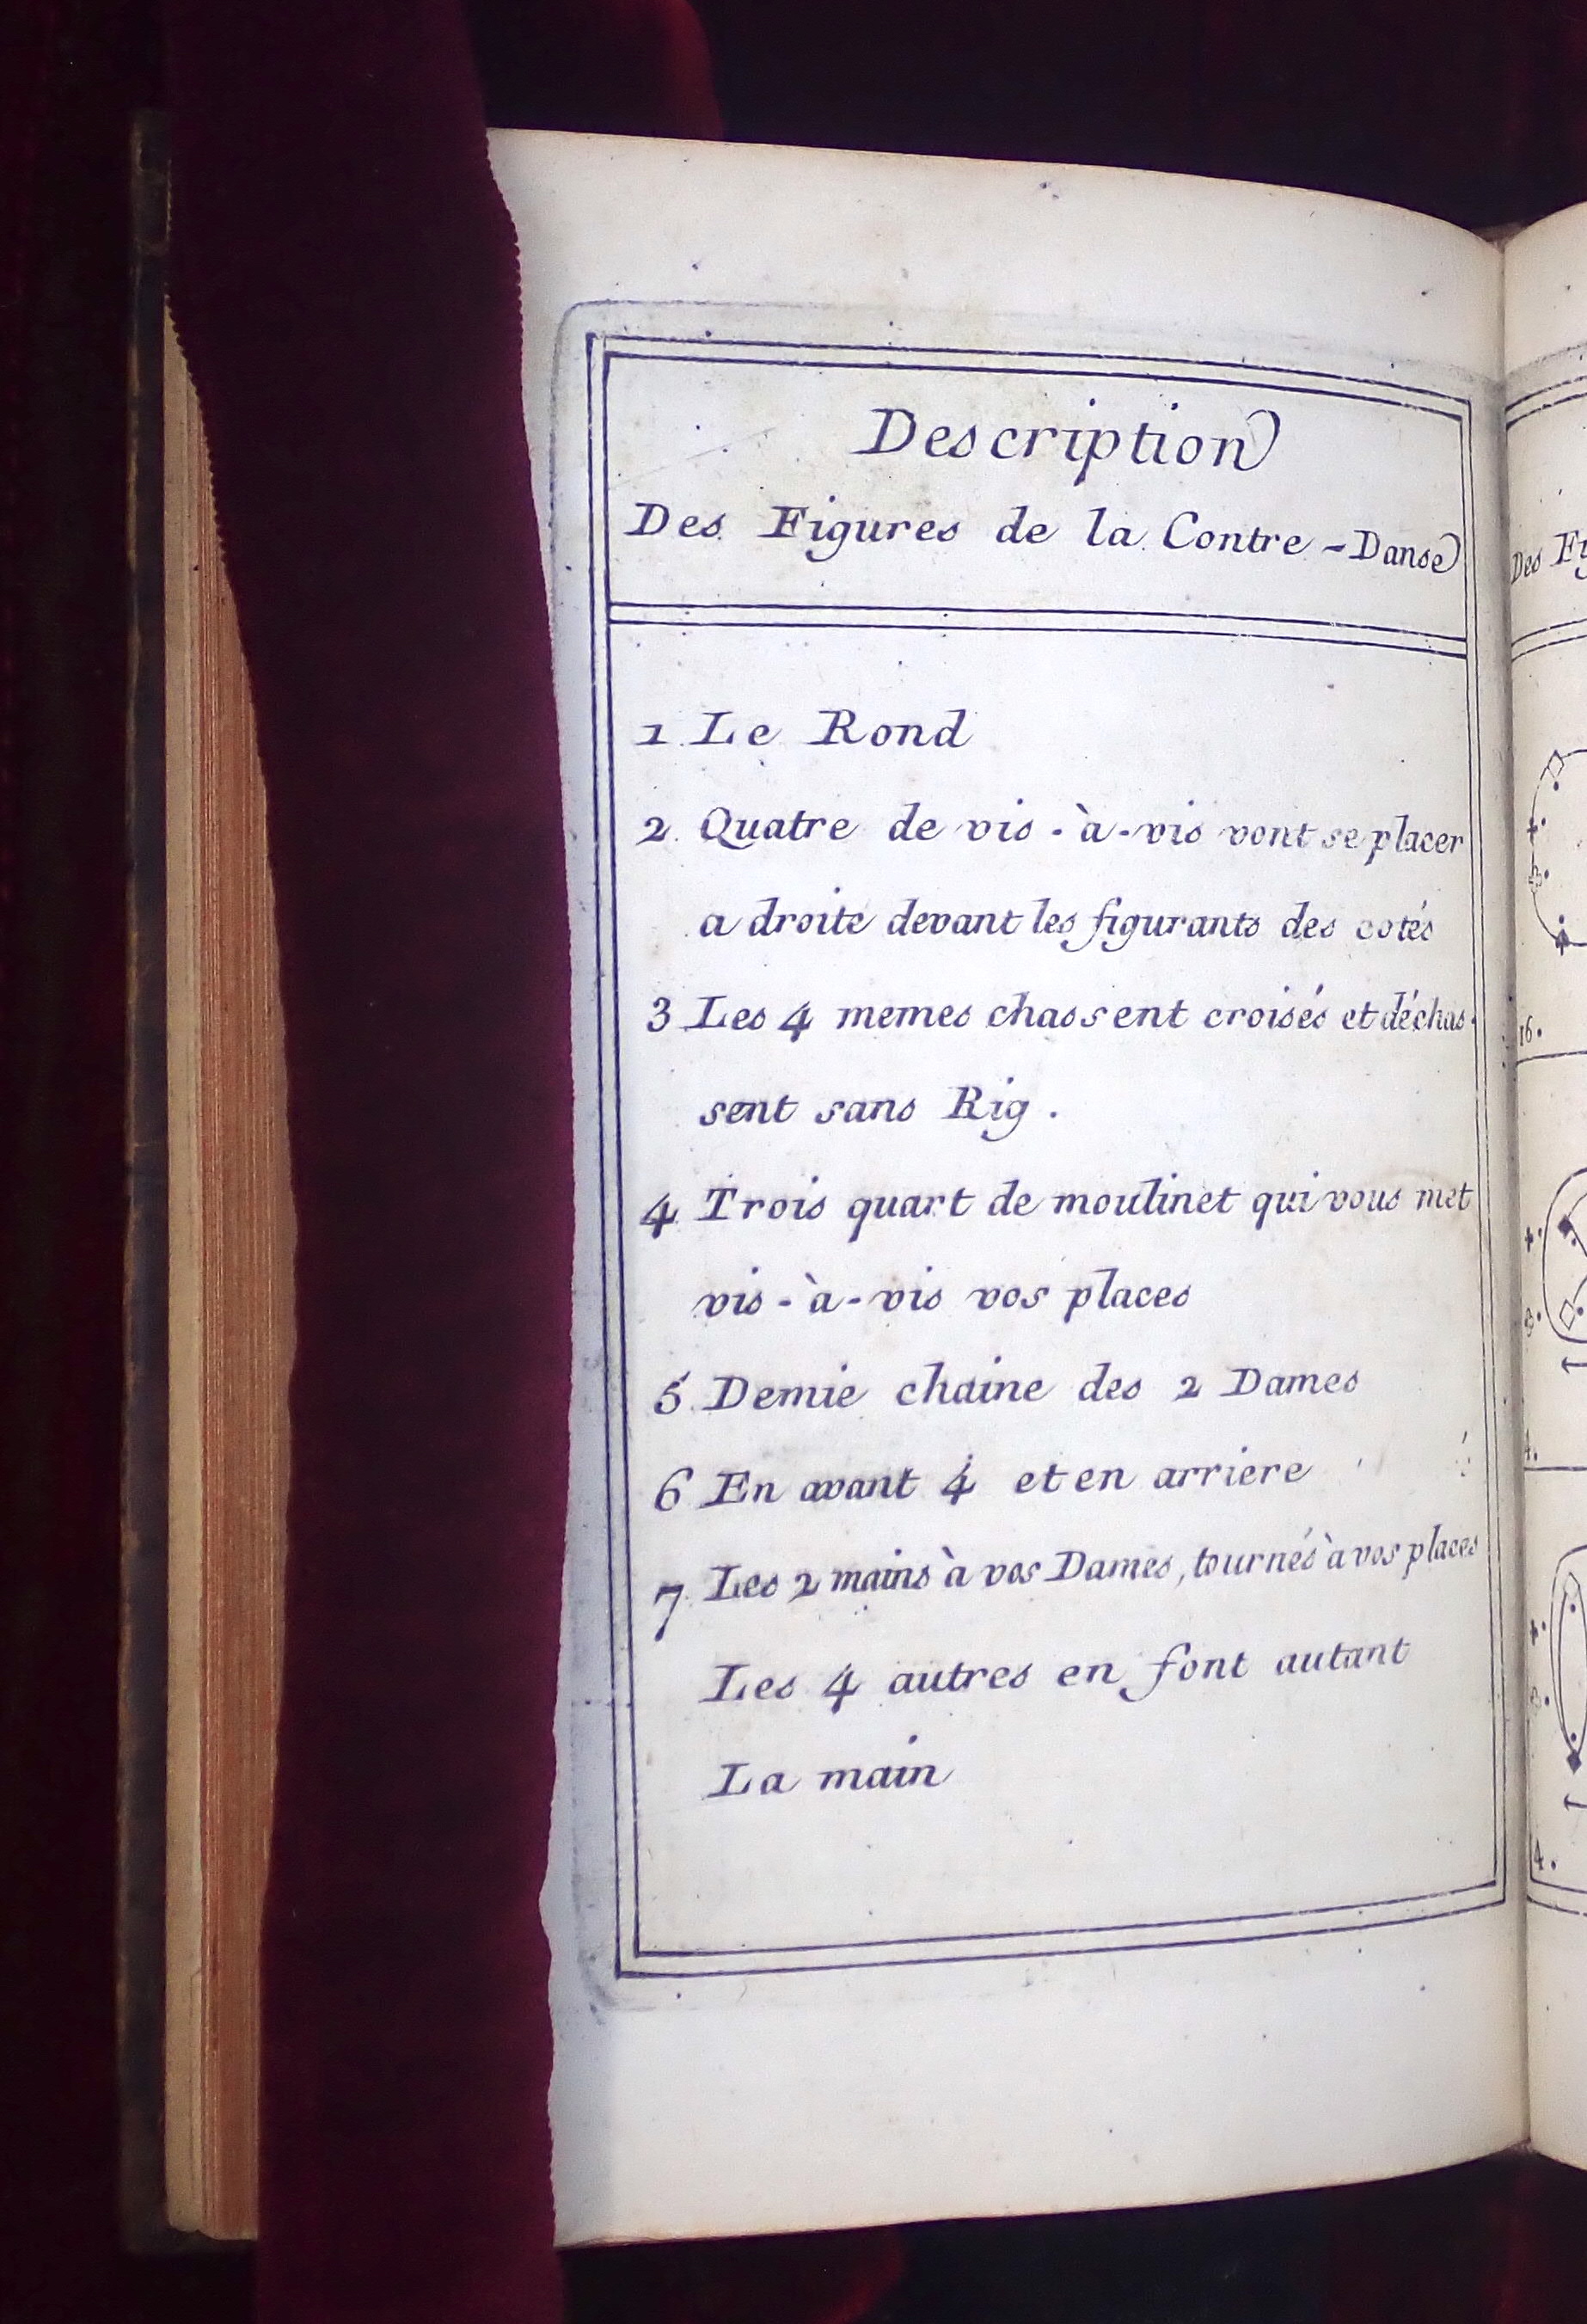 Description
Des Figures de la Contre-Danse
1. Le Rond
2. Quatre de vis-à-vis vont se placer
a droite devant les figurants des cotés
3 Les 4 memes chassent croisés et déchas-
sent sans Rig.
4. Trois quart de moulinet qui vous met
vis-à-vis vos places
5. Demie chaine des 2 Dames
6 En avant 4 et en arriere
7. Les 2 mains à vos Dames, tournés à vos places
Les 4 autres en font autant
La main
Des
16.
4.
4.